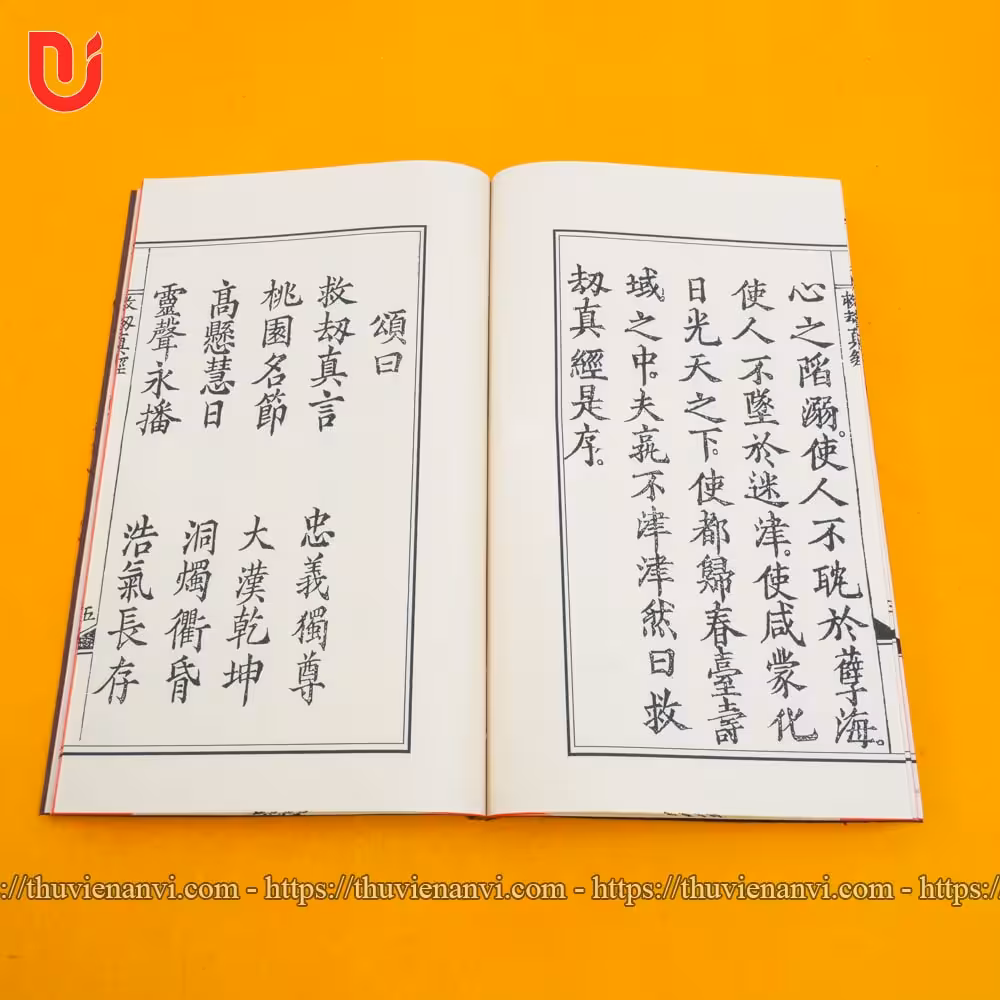 心之陷溺。使人不耽於孽海。
使人不墜於迷津。使咸蒙化
日光天之下。使都歸春臺壽
域。之中。夫孰不津津然曰救
劫真經是序。
頌曰
救劫真言 忠義獨尊
桃園名節 大漢乾坤
高懸慧日 洞燭衢昏
靈聲永播 浩氣長存
救劫真經
五
https://thuvienanvi.com - https://thuvienanvi.com - https://thuvienanvi.com - https://